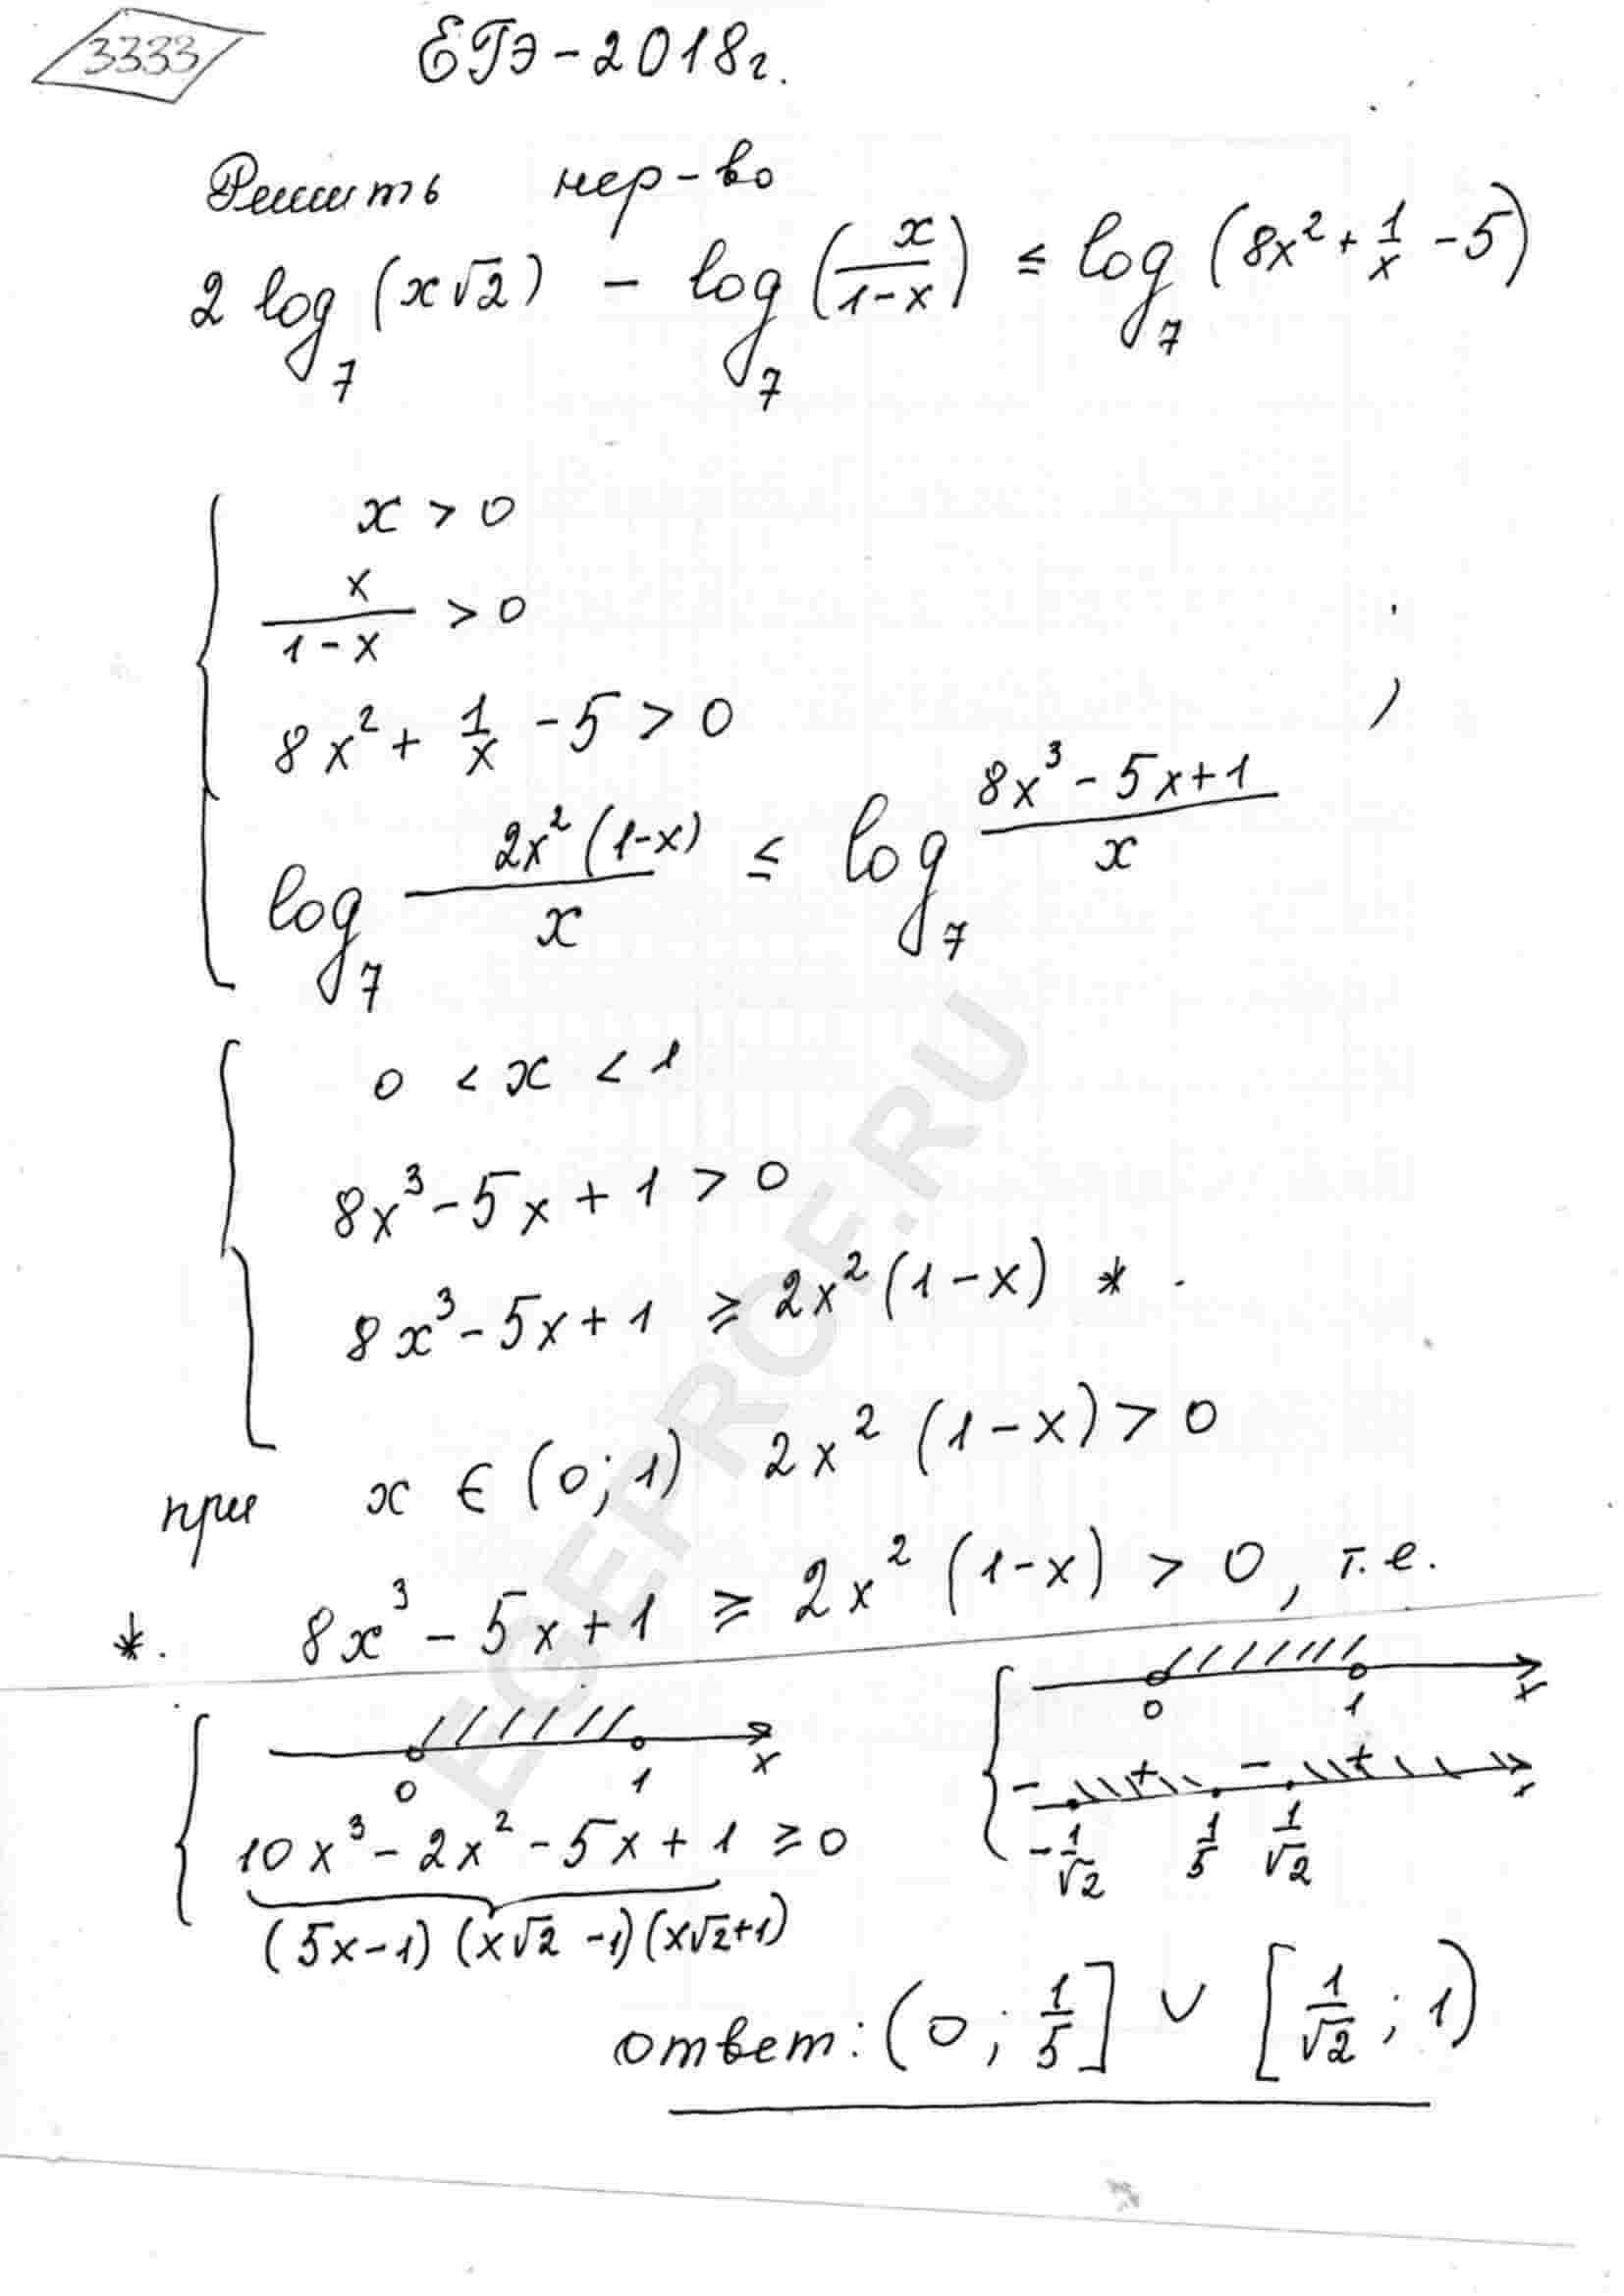 3333
ЕГЭ-2018г.
Решить нер-во
2 log₇ (x√2) - log₇ (x/(1-x)) ≤ log₇ (8x² + 1/x - 5)
x > 0
x/(1-x) > 0
8x² + 1/x - 5 > 0 ;
log₇ 2x²(1-x)/x ≤ log₇ (8x³-5x+1)/x
0 < x < 1
8x³ - 5x + 1 > 0
8x³ - 5x + 1 ≥ 2x²(1-x) * .
при x ∈ (0; 1) 2x² (1-x) > 0
*. 8x³ - 5x + 1 ≥ 2x² (1-x) > 0, т.е.
0 1 x
10x³ - 2x² - 5x + 1 ≥ 0
(5x-1) (x√2 -1)(x√2+1)
0 1 x
- + - + x
-1/√2 1/5 1/√2
ответ: (0 ; 1/5] ∪ [1/√2 ; 1)
EGEPROF.RU